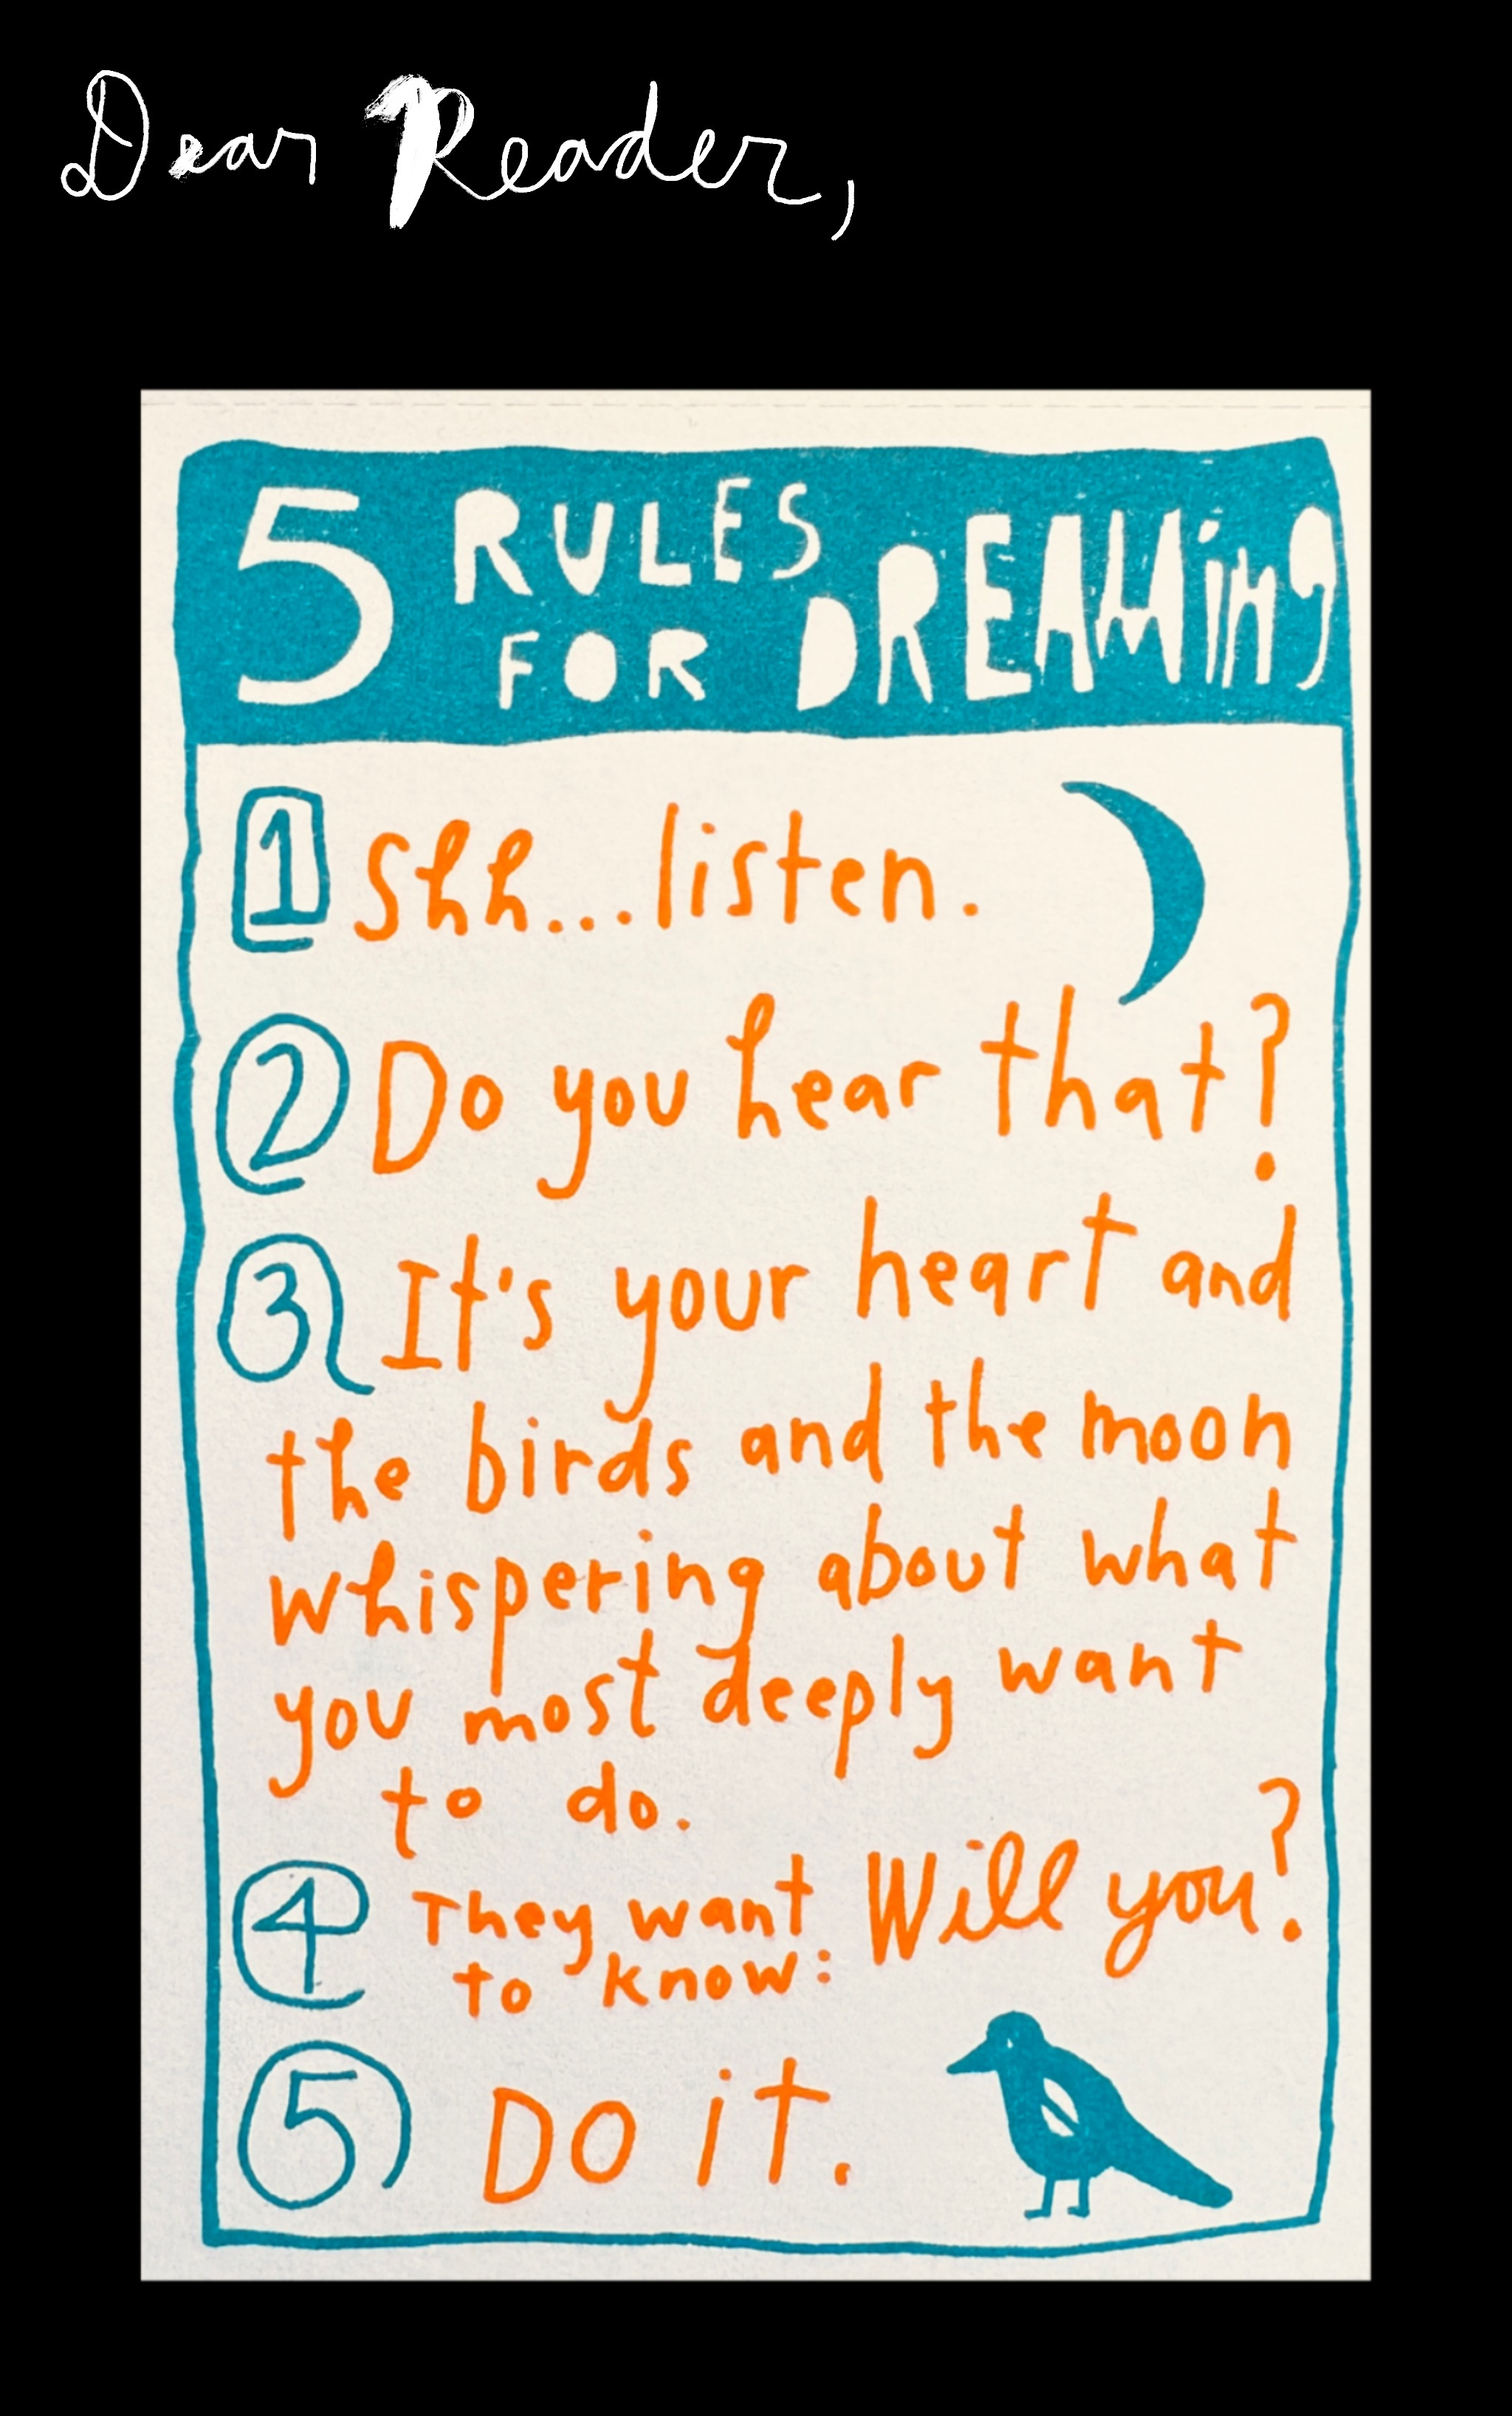 Dear Reader,
5 RULES
FOR DREAMing
1 Shh...listen.
2 Do you hear that?
3 It's your heart and
the birds and the moon
whispering about what
you most deeply want
to do.
4 They want Will you?
to know:
5 DO iT.